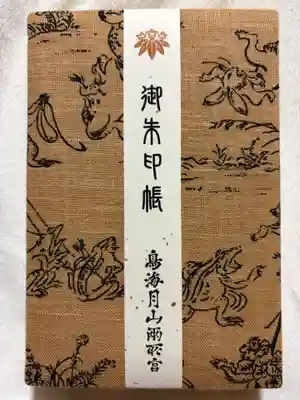 御朱印帳
鳥海月山両所宮